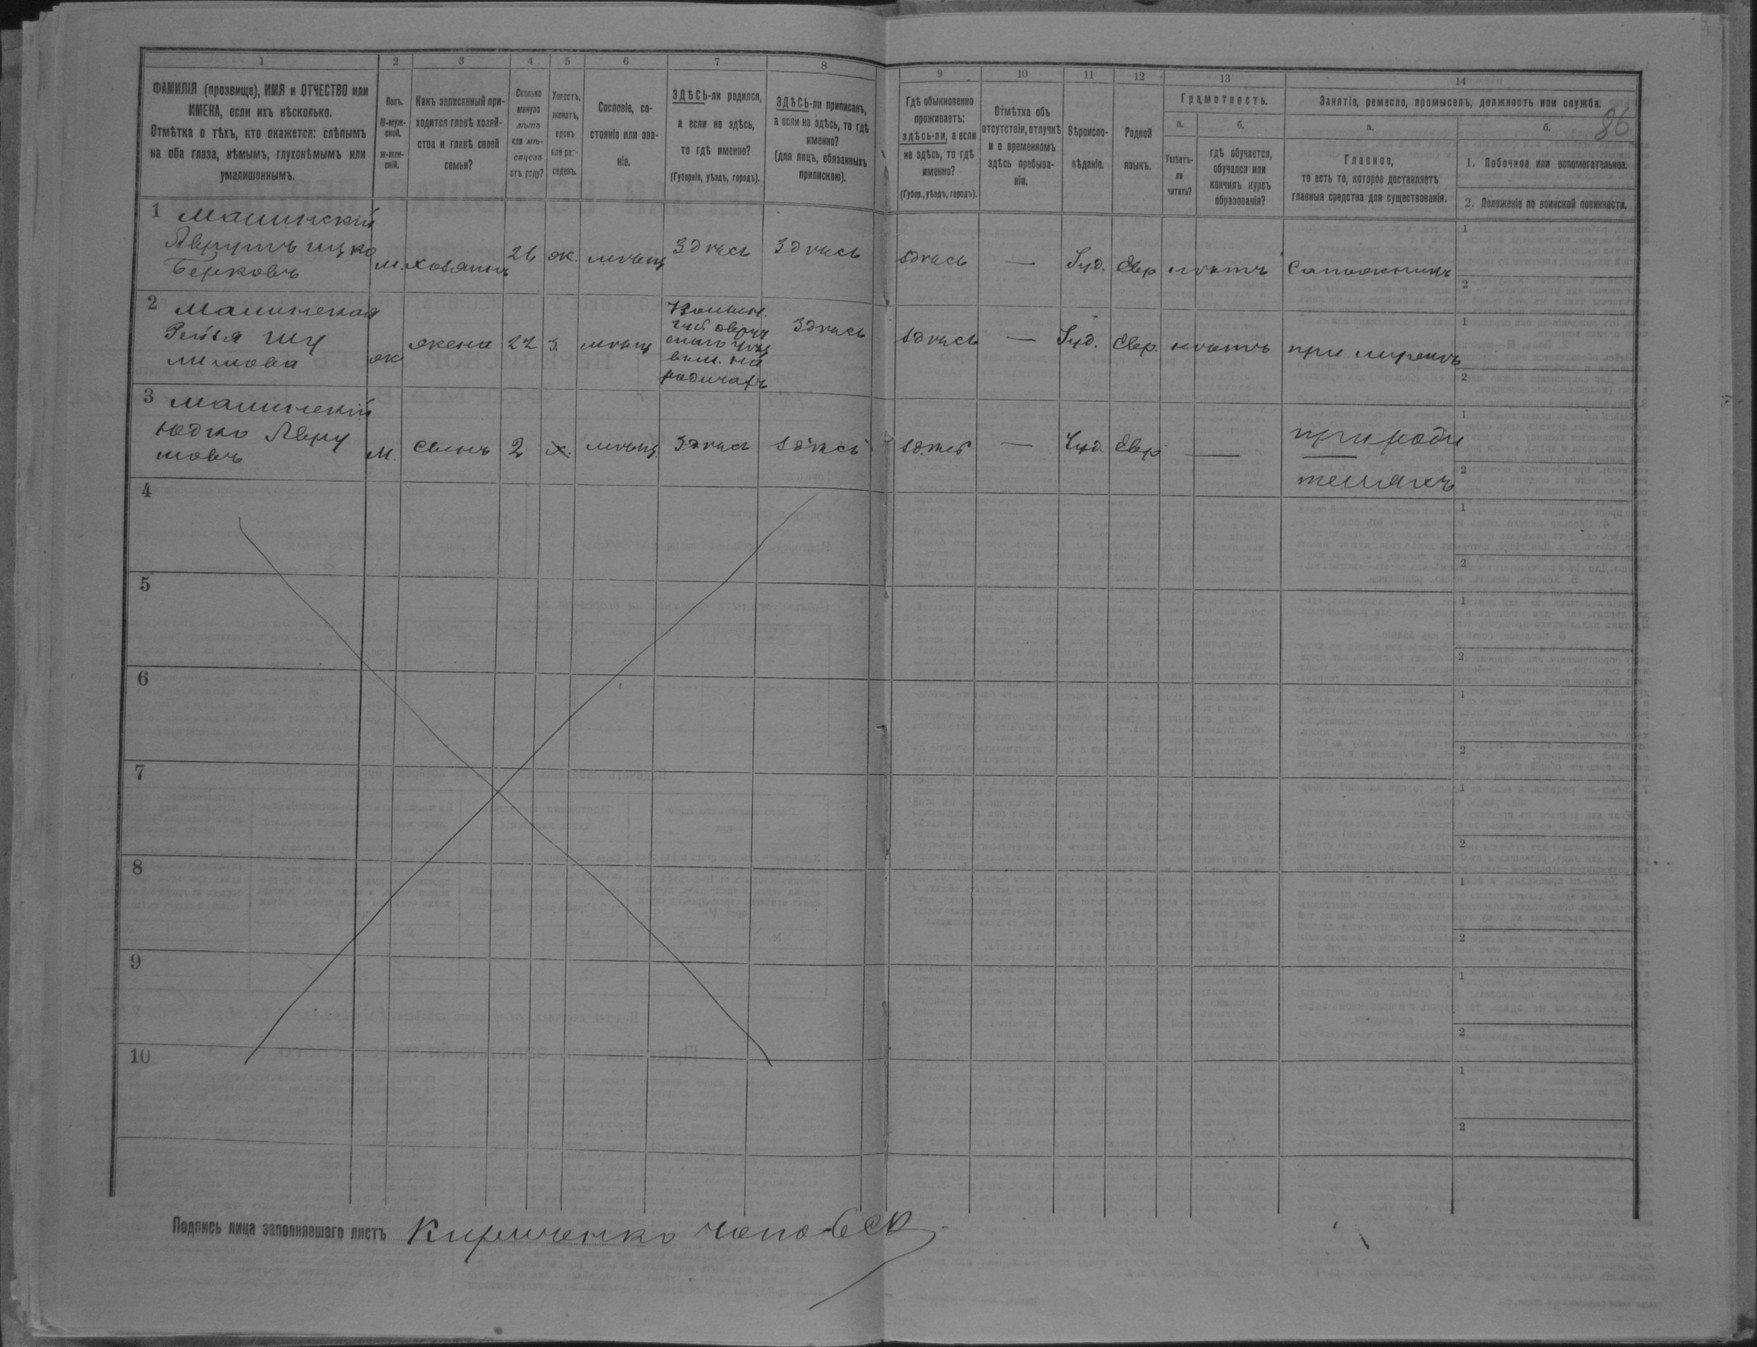 1 2 3 4 5 6 7 8 9 10 11 12 13 14
86
ФАМИЛІЯ (прозвище), ИМЯ и ОТЧЕСТВО или
ИМЕНА, если ихъ нѣсколько.
Отмѣтка о тѣхъ, кто окажется: слѣпымъ
на оба глаза, нѣмымъ, глухонѣмымъ или
умалишеннымъ.
Полъ.
М-муж-
ской.
ж-жен-
скій.
Какъ записанный при-
ходится главѣ хозяй-
ства и главѣ своей
семьи?
Сколько
минуло
лѣтъ
или мѣ-
сяцевъ
отъ роду?
Холостъ,
женатъ,
вдовъ
или раз-
веденъ.
Сословіе, со-
стояніе или зва-
ніе.
ЗДѢСЬ-ли родился,
а если не здѣсь,
то гдѣ именно?
(Губернія, уѣздъ, городъ).
ЗДѢСЬ-ли приписанъ,
а если не здѣсь, то гдѣ
именно?
(для лицъ, обязанныхъ
припискою).
Гдѣ обыкновенно
проживаетъ:
здѣсь-ли, а если
не здѣсь, то гдѣ
именно?
(Губер., уѣздъ, городъ).
Отмѣтка объ
отсутствіи, отлучкѣ
и о временномъ
здѣсь пребыва-
ніи.
Вѣроиспо-
вѣданіе.
Родной
языкъ.
Грамотность.
а.
Умѣетъ-
ли
читать?
б.
гдѣ обучается,
обучался или
кончилъ курсъ
образованія?
Занятіе, ремесло, промыселъ, должность или служба.
а.
Главное,
то есть то, которое доставляетъ
главныя средства для существованія.
б.
1. Побочное или вспомогательное.
2. Положеніе по воинской повинности.
1 Малинскій
Аврумъ Ицко
Берковъ
м. хозяинъ 26 ж. мѣщ Здѣсь Здѣсь Здѣсь — Іуд. Евр нѣтъ Сапожникъ
1
2
2 Малинская
жо жена 22 з. мѣщ
Здѣсь Здѣсь — Іуд. Евр. нѣтъ при мужѣ
1
2
3 Малинскій
Юдко Авру
мовъ
м. сынъ 2 х. мѣщ Здѣсь Здѣсь Здѣсь — Іуд. Евр — при роди
теляхъ
1
2
4
1
2
5
1
2
6
1
2
7
1
2
8
1
2
9
1
2
10
1
2
Подпись лица заполнявшаго листъ Кириченко